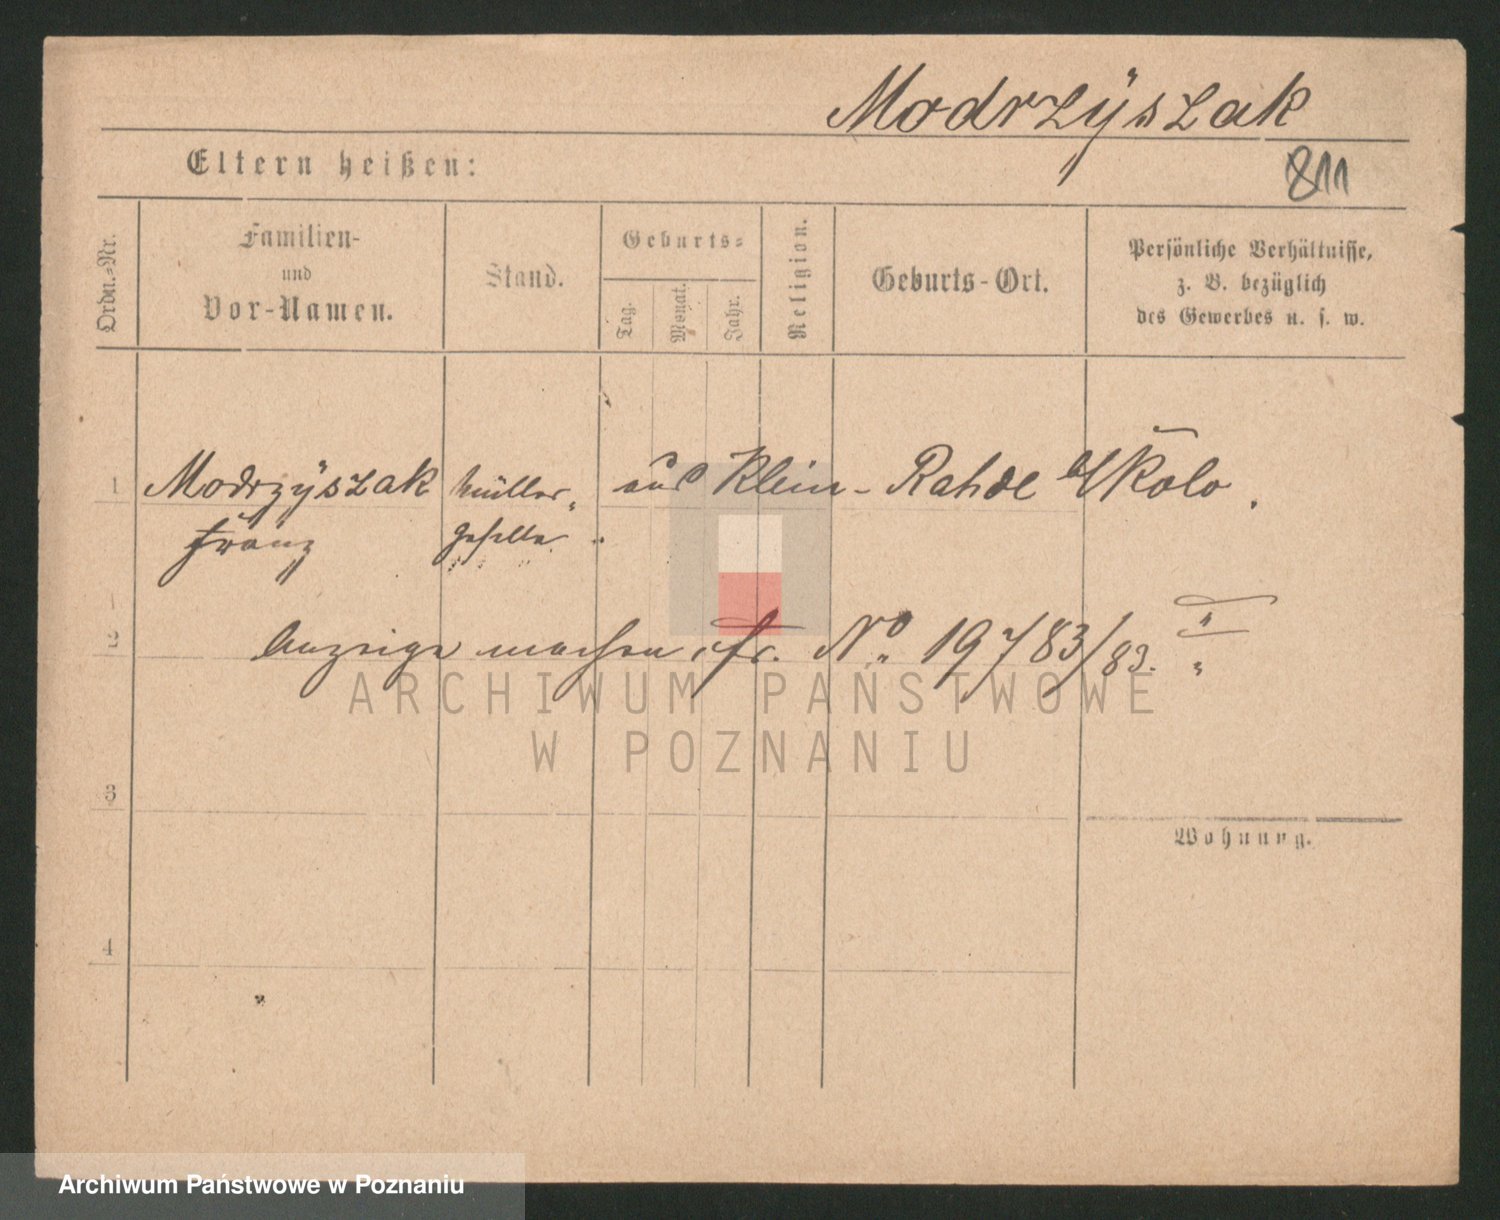 Modrzÿszak
811
Eltern heißen:
Ordn.-Nr.
Familien-
und
Vor-Namen.
Stand.
Geburts-
Tag.
Monat.
Jahr.
Religion.
Geburts-Ort.
Persönliche Verhältnisse,
z. B. bezüglich
des Gewerbes u. s. w.
1 Modrzÿszak Müller- aus Klein-Rahde Kolo.
Franz geselle.
2 Anzeige machen, fr. No. 19783/83. II
ARCHIWUM PAŃSTWOWE
W POZNANIU
3
Wohnung.
4
Archiwum Państwowe w Poznaniu